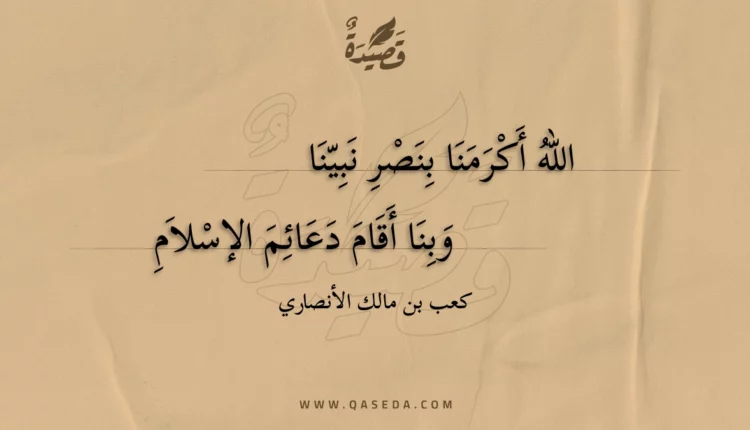 قَصِيدَةٌ
اللهُ أَكْرَمَنَا بِنَصْرِ نَبِيّنَا
وَبِنَا أَقَامَ دَعَائِمَ الإسْلاَمِ
كعب بن مالك الأنصاري
WWW.QASEDA.COM